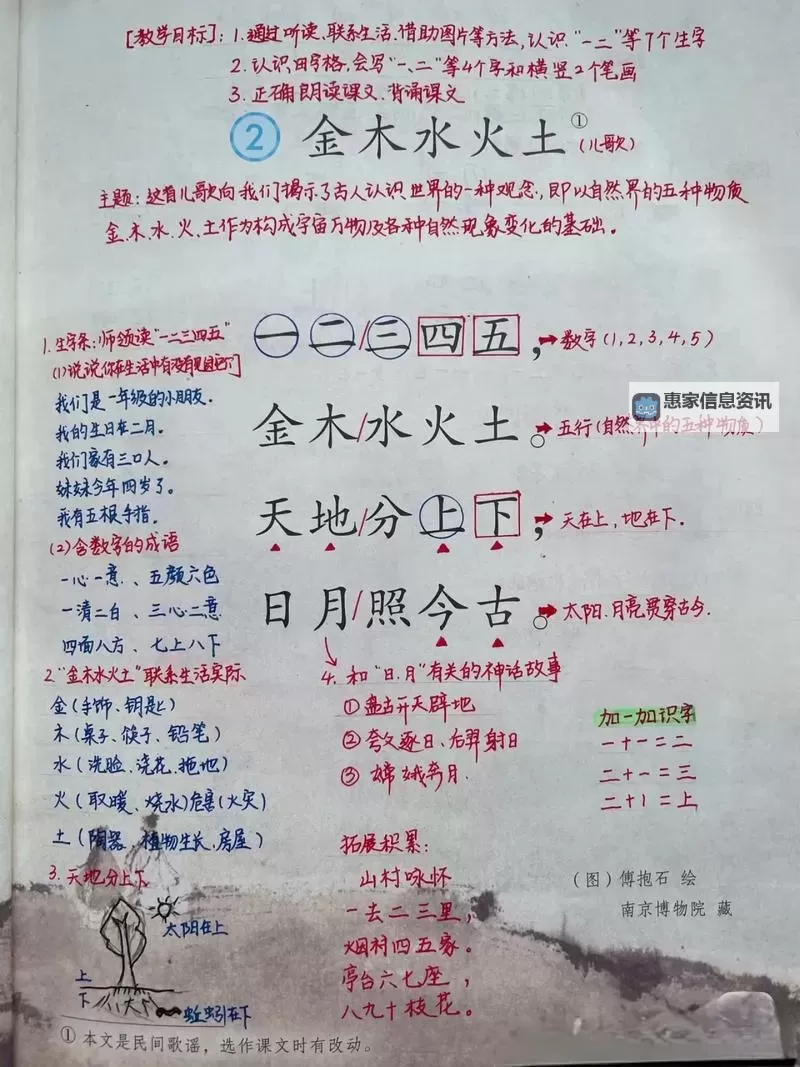 [教学目标]：1.通过听读、联系生活、借助图片等方法，认识“一二”等7个生字
2.认识田字格，会写“一、二”等4个字和横竖2个笔画
3.正确朗读课文.背诵课文
2 金木水火土① (儿歌)
主题：这首儿歌向我们揭示了古人认识世界的一种观念，即以自然界的五种物质
金、木、水、火、土作为构成宇宙万物及各种自然现象变化的基础。
1.生字条：师领读“一二三四五”
(1)说说你在生活中有没有见过它们
我们是一年级的小朋友.
我的生日在二月。
我们家有三口人。
妹妹今年四岁了。
我有五根手指.
(2)含数字的成语
一心一意、五颜六色
一清二白、三心二意
四面八方、七上八下
2.“金木水火土”联系生活实际
金(手饰、钥匙)
木(桌子、筷子、铅笔)
水(洗脸、浇花、拖地)
火(取暖、烧水)危害(火灾)
土(陶器、植物生长、房屋)
3.天地分上下
太阳在上
上
下
蚯蚓在下
一二/三四五， 数字(1,2,3,4,5)
惠家信息资讯
金木/水火土。 五行(自然界中的五种物质)
天地/分上下， 天在上，地在下.
日月/照今古。 太阳、月亮贯穿古今.
4.和“日、月”有关的神话故事
①盘古开天辟地
②夸父逐日、后羿射日
③嫦娥奔月.
加一加识字
一+一=二
二+一=三
二+丨=上
拓展积累：
山村咏怀
一去二三里，
烟村四五家。
亭台六七座，
八九十枝花。
(图)傅抱石 绘
南京博物院 藏
①本文是民间歌谣，选作课文时有改动。